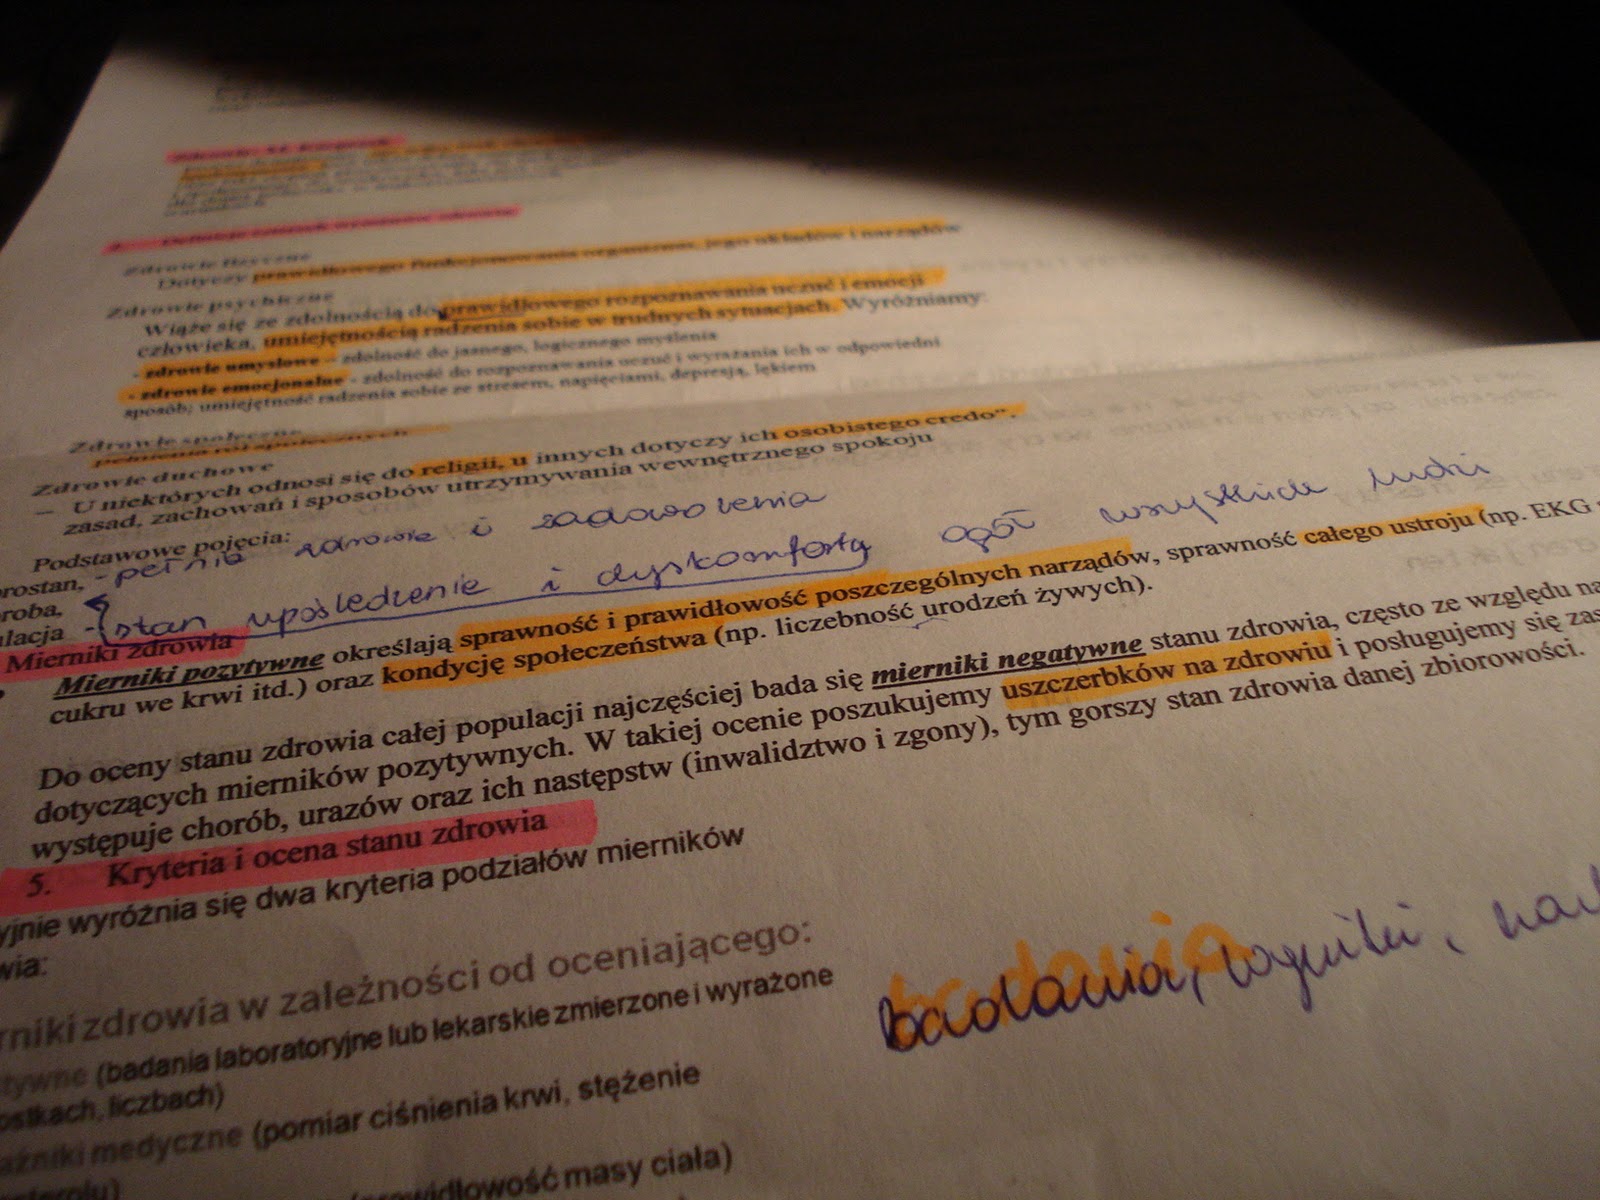 Zdrowie fizyczne
Dotyczy prawidłowego funkcjonowania organizmu, jego układów i narządów
Zdrowie psychiczne
Wiąże się ze zdolnością do prawidłowego rozpoznawania uczuć i emocji
człowieka, umiejętnością radzenia sobie w trudnych sytuacjach. Wyróżniamy:
- zdrowie umysłowe – zdolność do jasnego, logicznego myślenia
- zdrowie emocjonalne - zdolność do rozpoznawania uczuć i wyrażania ich w odpowiedni
sposób; umiejętność radzenia sobie ze stresem, napięciami, depresją, lękiem
Zdrowie społeczne
pełnienia ról społecznych
Zdrowie duchowe
– U niektórych odnosi się do religii, u innych dotyczy ich osobistego credo".
zasad, zachowań i sposobów utrzymywania wewnętrznego spokoju
Podstawowe pojęcia:
rostan, - pełnia zdrowia i zadowolenia
roba,
lacja - stan upośledzenie i dyskomfortu ogół wszystkich ludzi
Mierniki zdrowia
Mierniki pozytywne określają sprawność i prawidłowość poszczególnych narządów, sprawność całego ustroju (np. EKG
cukru we krwi itd.) oraz kondycję społeczeństwa (np. liczebność urodzeń żywych).
Do oceny stanu zdrowia całej populacji najczęściej bada się mierniki negatywne stanu zdrowia, często ze względu na
dotyczących mierników pozytywnych. W takiej ocenie poszukujemy uszczerbków na zdrowiu i posługujemy się zas
występuje chorób, urazów oraz ich następstw (inwalidztwo i zgony), tym gorszy stan zdrowia danej zbiorowości.
5. Kryteria i ocena stanu zdrowia
yjnie wyróżnia się dwa kryteria podziałów mierników
wia:
rniki zdrowia w zależności od oceniającego:
tywne (badania laboratoryjne lub lekarskie zmierzone i wyrażone
ostkach, liczbach)
badania,
aźniki medyczne (pomiar ciśnienia krwi, stężenie
prawidłowość masy ciała)